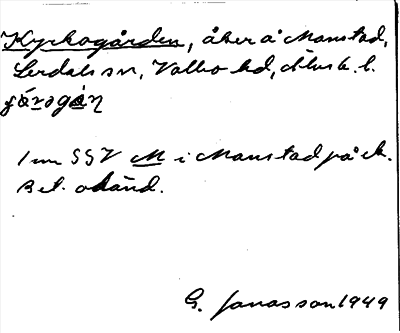 Kyrkogården, åker å Mamstad,
Lerdals sn, Valbo hd, Älvsb. l.
1 mm SSV M i Mamstad på ek.
Bet. okänd.
G. Jonasson 1949